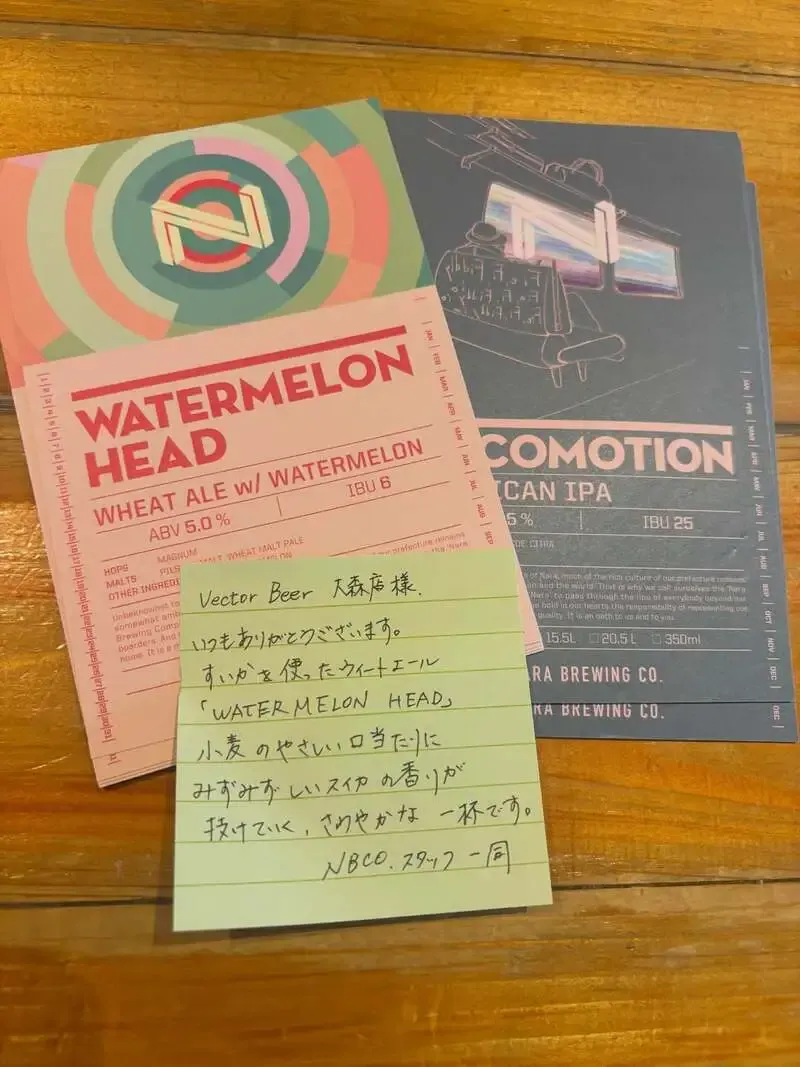 N
WATERMELON
HEAD
WHEAT ALE w/ WATERMELON
ABV 5.0 %
IBU 6
HOPS MAGNUM
MALTS
WHEAT MALT PALE
JAN FEB MAR APR MAY JUN JUL AUG SEP
N
COMOTION
ICAN IPA
5 %
IBU 25
CITRA
of Nara, most of the rich culture of our prefecture remains
and the world. That is why we call ourselves the "Nara
to pass through the lips of everybody beyond our
hold in our hearts the responsibility of representing our
quality. It is an oath to us and to you.
15.5L □20.5 L □350ml
ARA BREWING CO.
ARA BREWING CO.
JAN FEB MAR APR MAY JUN JUL AUG SEP OCT NOV DEC
DEC
Vector Beer 大森店様.
いつもありがとうございます。
すいかを使ったウィートエール
「WATERMELON HEAD」
小麦のやさしい口当たりに
みずみずしいスイカの香りが
抜けていく、さわやかな一杯です。
NBCO.スタッフ一同